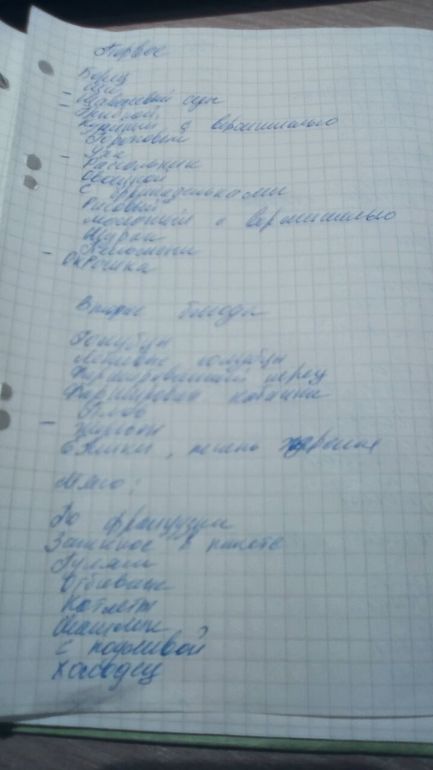 Первое
Борщ
- Щи
- Щавелевый суп
Грибной
Куриный с вермишелью
Гороховый
- Уха
Рассольник
Овощной
С фрикадельками
Рисовый
Молочный с вермишелью
Харчо
- Окрошка
Вторые блюда
Голубцы
Ленивые голубцы
Фаршированный перец
Плов
-
Ёжики, печень жареная
Мясо:
По французски
Запеченое в пакете
Гуляш
Отбивные
Котлеты
с подливой
Холодец